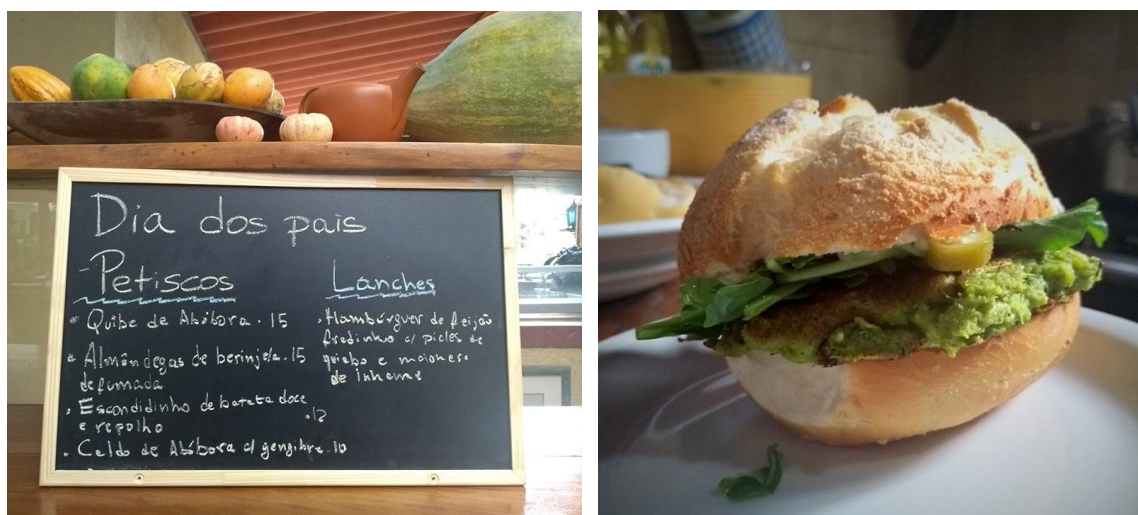 Dia dos pais
- Petiscos
Quibe de Abóbora . 15
Almôndegas de berinjela . 15
defumada
Escondidinho de batata doce
e repolho
. 12
Caldo de Abóbora c/ gengibre . 10
Lanches
Hambúrguer de feijão
fradinho c/ picles de
quiabo e maionese
de Inhame